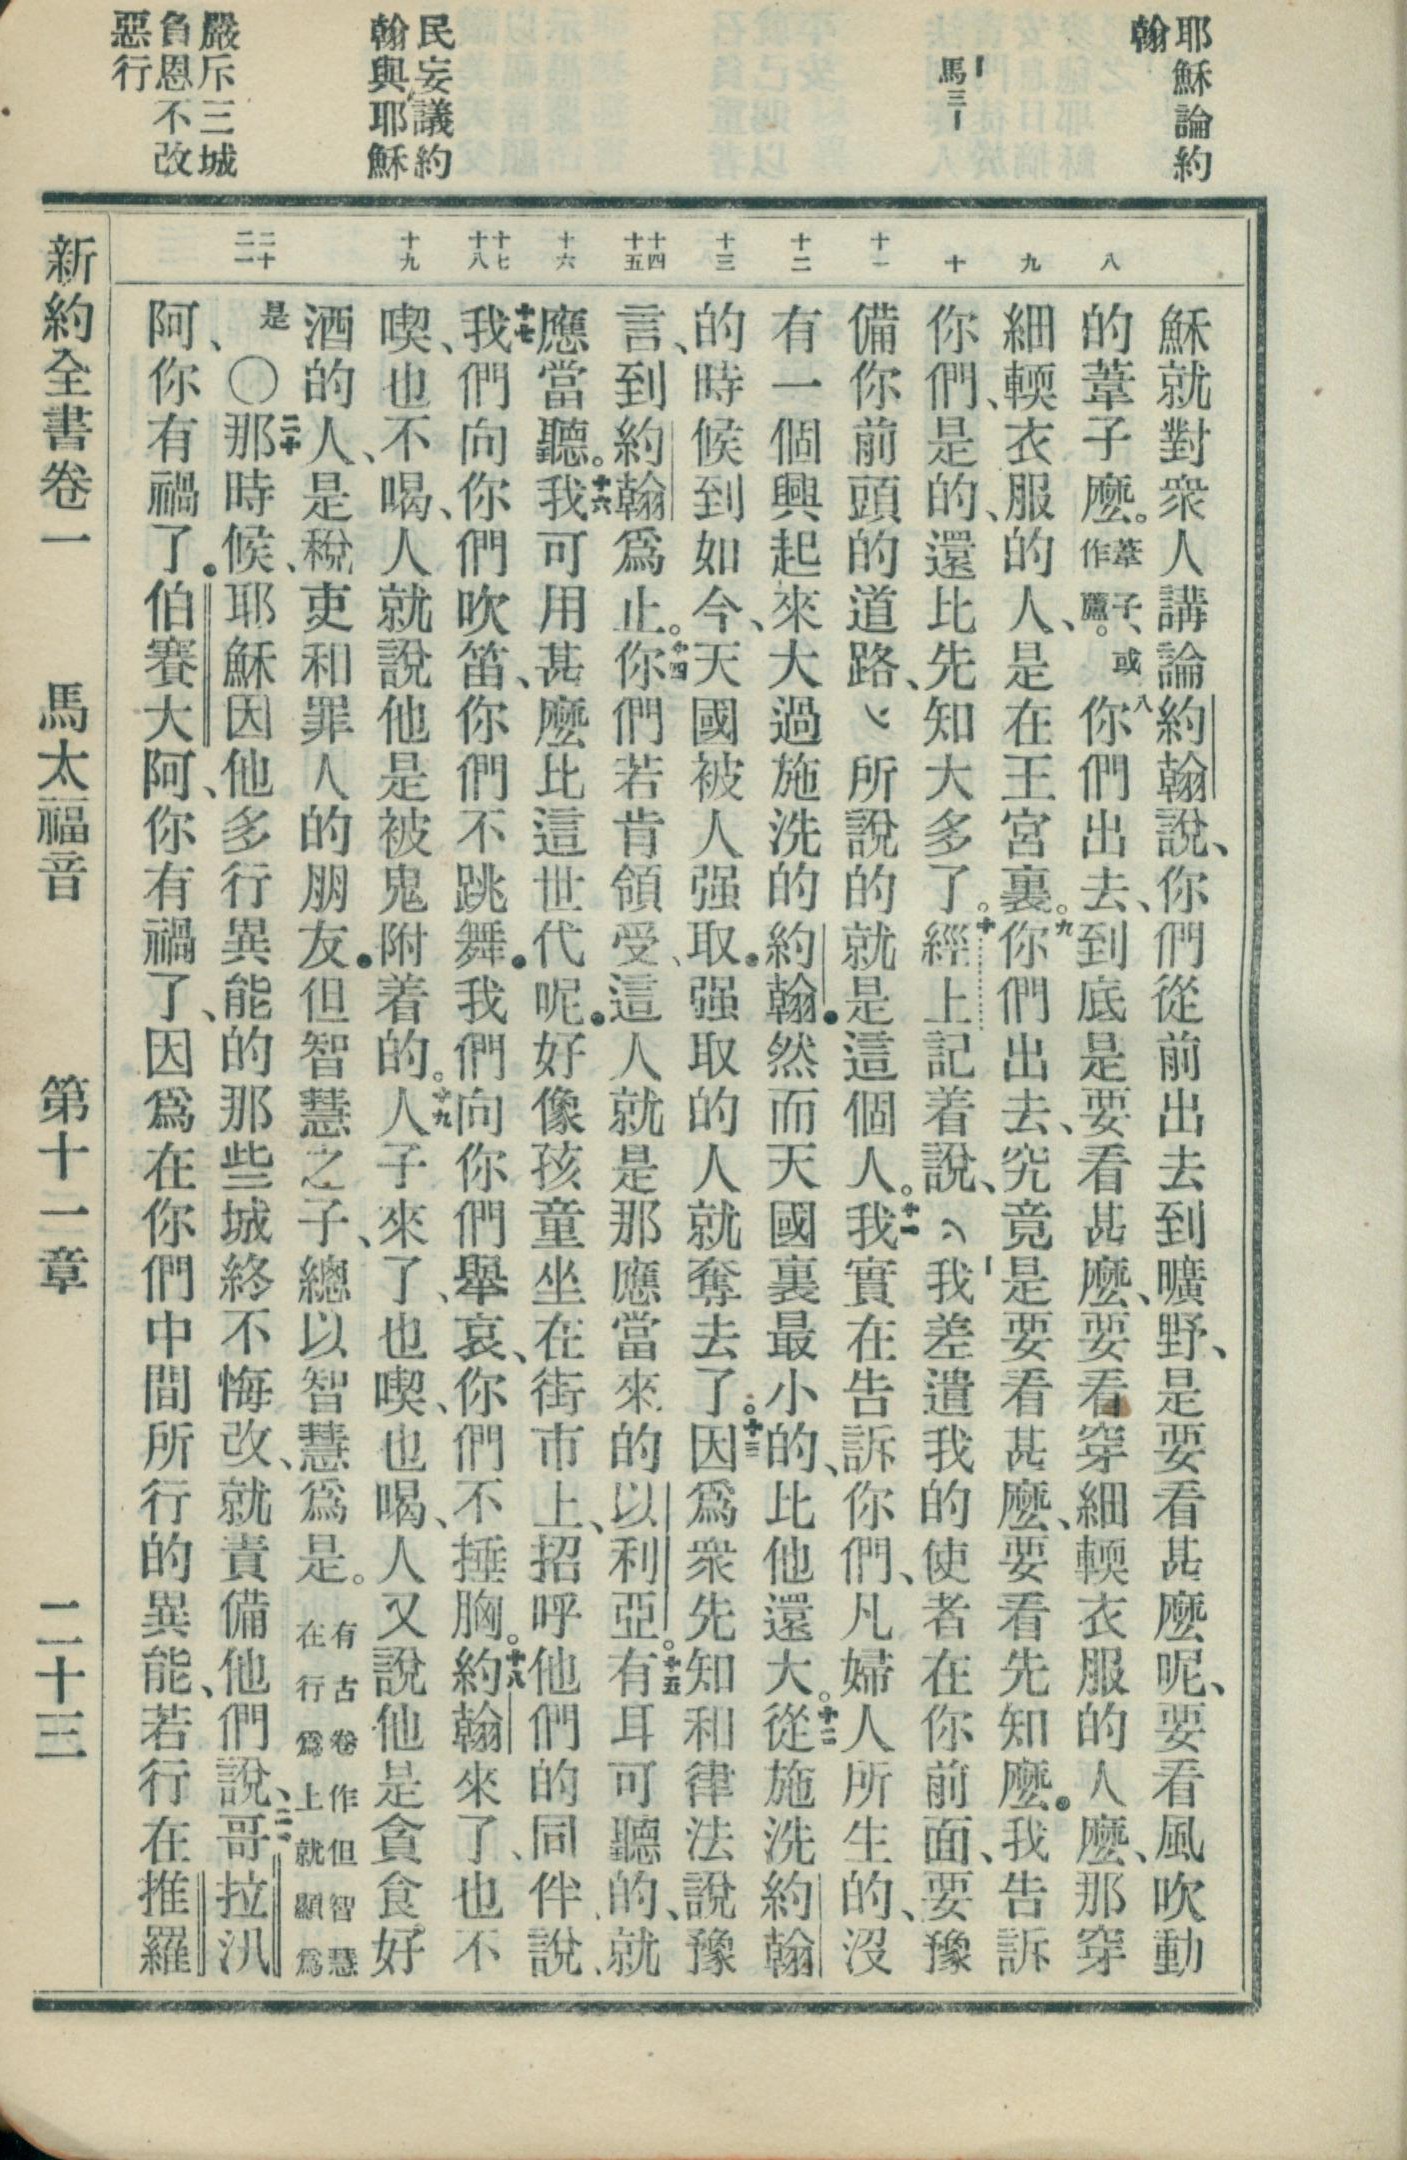 耶穌論約
翰
馬三1
民妄議約
翰與耶穌
嚴斥三城
負恩不改
惡行
八
九
十
十一
十二
十三
十四
十五
十六
十七
十八
十九
二十
二一
穌就對衆人講論約翰說、你們從前出去到曠野、是要看甚麼呢、要看風吹動
的葦子麼。葦子、或作蘆。八你們出去、到底是要看甚麼、要看穿細輭衣服的人麼、那穿
細輭衣服的人、是在王宮裏。九你們出去、究竟是要看甚麼、要看先知麼.我告訴
你們、是的、還比先知大多了。十經上記着說、我差遣我的使者在你前面、要豫
備你前頭的道路、所說的就是這個人。十一我實在告訴你們、凡婦人所生的、沒
有一個興起來大過施洗的約翰.然而天國裏最小的、比他還大。十二從施洗約翰
的時候到如今、天國被人强取.强取的人就奪去了。十三因爲衆先知和律法說豫
言、到約翰爲止。十四你們若肯領受、這人就是那應當來的以利亞。十五有耳可聽的、就
應當聽。十六我可用甚麼比這世代呢.好像孩童坐在街市上、招呼他們的同伴說、
十七我們向你們吹笛、你們不跳舞.我們向你們舉哀、你們不捶胸。十八約翰來了、也不
喫、也不喝、人就說他是被鬼附着的。十九人子來了、也喫、也喝、人又說他是貪食好
酒的人、是稅吏和罪人的朋友.但智慧之子、總以智慧爲是。有古卷作但智慧在行爲上就顯爲
是〇二十那時候、耶穌因他多行異能的那些城終不悔改、就責備他們說、二一哥拉汛
阿、你有禍了.伯賽大阿、你有禍了、因爲在你們中間所行的異能、若行在推羅
新約全書卷一 馬太福音 第十一章 二十三